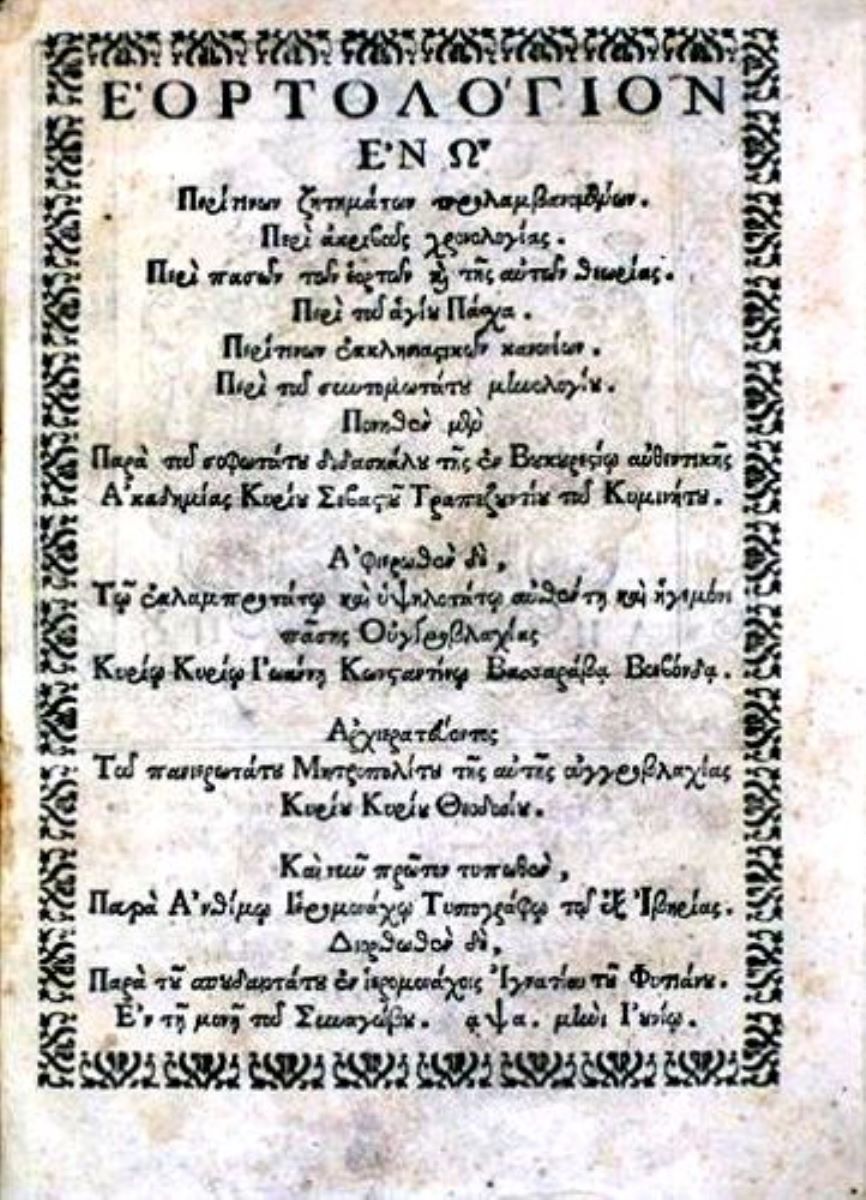 ἙΟΡΤΟΛΌΓΙΟΝ
ἘΝ Ὧ
Περί τινων ζητημάτων προλαμβανομένων.
Περὶ ἀκριβοῦς χρονολογίας.
Περὶ πασῶν τῶν ἑορτῶν καὶ τῆς αὐτῶν θεωρίας.
Περὶ τοῦ ἁγίου Πάσχα.
Περί τινων ἐκκλησιαστικῶν κανονίων.
Περὶ τοῦ συντομωτάτου μηνολογίου.
Πονηθὲν μὲν
Παρὰ τοῦ σοφωτάτου διδασκάλου τῆς ἐν Βουκουρεστίῳ αὐθεντικῆς
Ἀκαδημίας Κυρίου Σεβαστοῦ Τραπεζουντίου τοῦ Κυμινήτου.
Ἀφιερωθὲν δὲ,
Τῷ ἐκλαμπροτάτῳ καὶ ὑψηλοτάτῳ αὐθέντῃ καὶ ἡγεμόνι
πάσης Οὐγγροβλαχίας
Κυρίῳ Κυρίῳ Ἰωάννῃ Κωνσταντίνῳ Βασσαράβᾳ Βοεβόνδᾳ.
Ἀρχιερατεύοντος
Τοῦ πανιερωτάτου Μητροπολίτου τῆς αὐτῆς οὐγγροβλαχίας
Κυρίου Κυρίου Θεοδοσίου.
Καὶ νῦν πρῶτον τυπωθὲν,
Παρὰ Ἀνθίμῳ Ἱερομονάχῳ Τυπογράφῳ τῷ ἐξ Ἰβηρίας.
Διορθωθὲν δὲ,
Παρὰ τοῦ σπουδαιοτάτου ἐν ἱερομονάχοις Ἰγνατίου τοῦ Φυτιάνου.
Ἐν τῇ μονῇ τοῦ Συναγώβου. ͵αψα. μηνὶ Ἰουνίῳ.